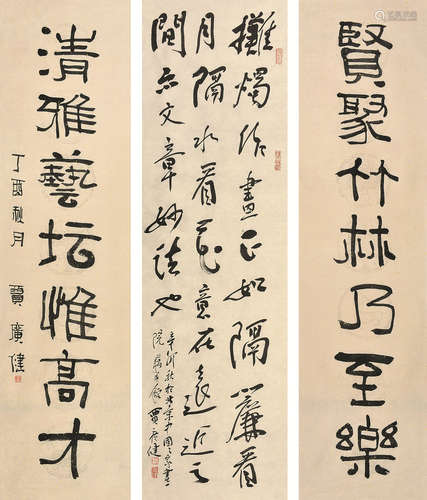 賢聚竹林乃至樂
攤燭作畫正如隔簾看
月隔水看花意在遠近之
間亦文章妙法也
賈廣健
清雅藝坛惟高才
丁酉秋月 賈廣健